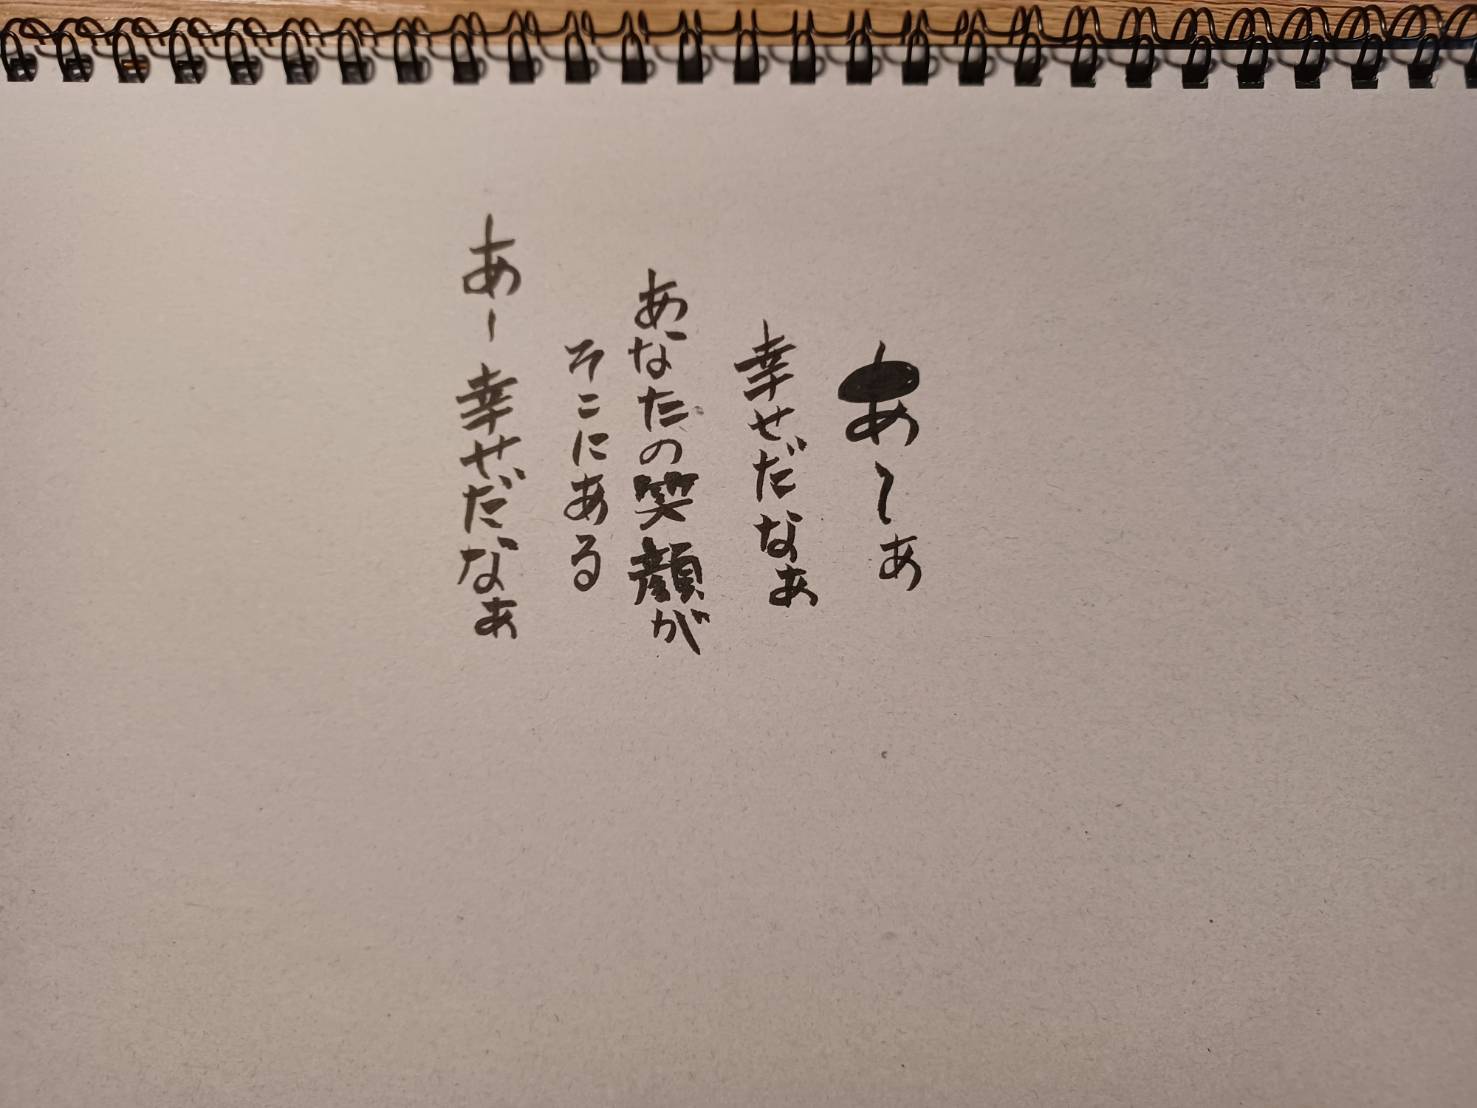 あ〜ぁ
幸せだなぁ
あなたの笑顔が
そこにある
あー幸せだなぁ